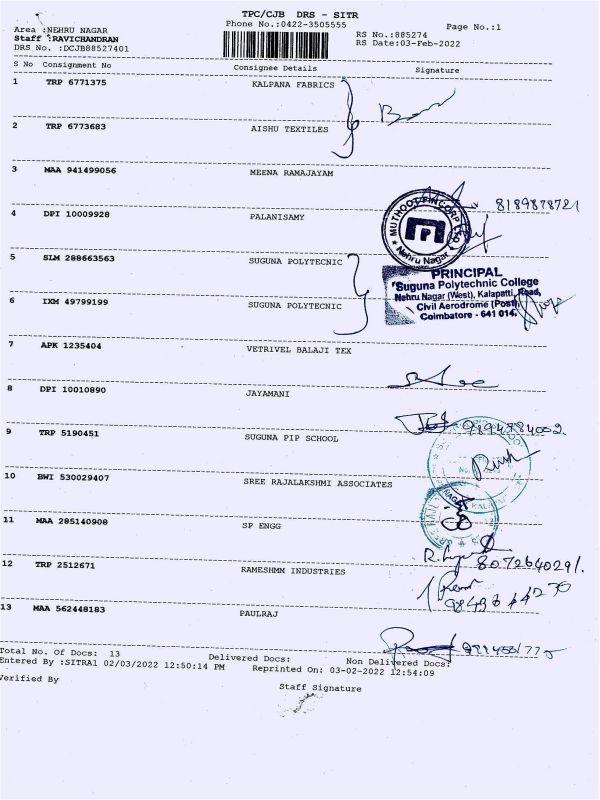 TPC/CJB DRS - SITR
Phone No.:0422-3505555
Page No.:1
Area :NEHRU NAGAR
RS No.:885274
Staff :RAVICHANDRAN
RS Date:03-Feb-2022
DRS No. :DCJB88527401
S No Consignment No Consignee Details Signature
1 TRP 6771375 KALPANA FABRICS
2 TRP 6773683 AISHU TEXTILES
3 MAA 941499056 MEENA RAMAJAYAM
8189878721
4 DPI 10009928 PALANISAMY
MUTHOOT FINCORP LTD
Nehru Nagar
5 SLM 288663563 SUGUNA POLYTECNIC
PRINCIPAL
Suguna Polytechnic College
Nehru Nagar (West), Kalapatti, Road,
Civil Aerodrome (Post)
Coimbatore - 641 014.
6 IXM 49799199 SUGUNA POLYTECNIC
7 APK 1235404 VETRIVEL BALAJI TEX
8 DPI 10010890 JAYAMANI
9 TRP 5190451 SUGUNA PIP SCHOOL
10 BWI 530029407 SREE RAJALAKSHMI ASSOCIATES
11 MAA 285140908 SP ENGG
12 TRP 2512671 RAMESHMM INDUSTRIES
13 MAA 562448183 PAULRAJ
Total No. Of Docs: 13 Delivered Docs: Non Delivered Docs:
Entered By :SITRA1 02/03/2022 12:50:14 PM Reprinted On: 03-02-2022 12:54:09
Verified By Staff Signature